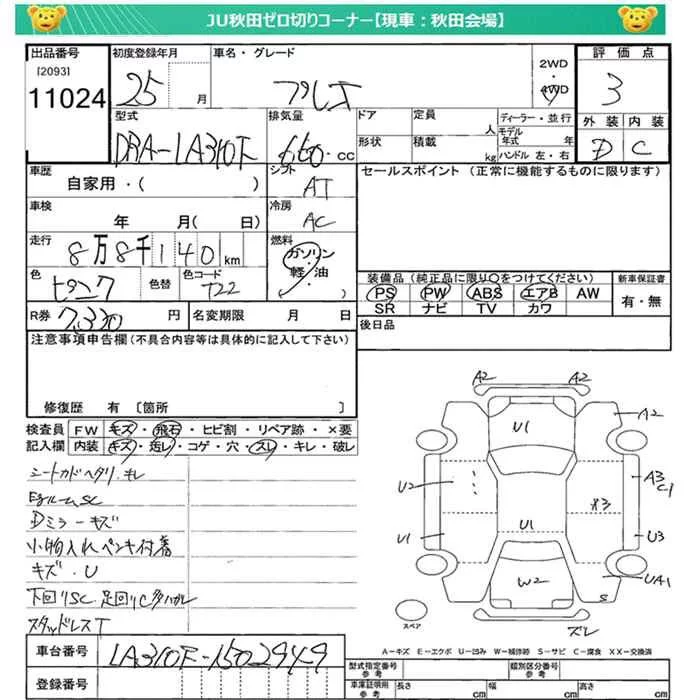 JU秋田ゼロ切りコーナー【現車：秋田会場】
出品番号
[2093]
11024
初度登録年月
25 月
車名・グレード
プレオ
2WD
4WD
評価点
3
外装 内装
D C
型式
DBA-LA310F
排気量
660 cc
ドア
形状
定員 人
積載 kg
ディーラー・並行
モデル年式 年
ハンドル 左・右
車歴
自家用・( )
シフト
AT
セールスポイント (正常に機能するものに限ります)
車検
年 月( 日)
冷房
AC
走行
8万8千140 km
燃料
ガソリン
軽・油
色
ピンク
色替
色コード
T22
装備品(純正品に限り○をつけてください)
新車保証書
PS PW ABS エアB AW
有・無
SR ナビ TV カワ
R券
7,330 円
名変期限 月 日
後日品
注意事項申告欄(不具合内容等は具体的に記入して下さい)
修復歴 有 [箇所 ]
検査員 FW キズ・飛石・ヒビ割・リペア跡・×要
記入欄 内装 キズ・汚レ・コゲ・穴・スレ・キレ・破レ
シートカドヘタリ.キレ
Egルーム SC
Dミラーキズ
小物入れペンキ付着
キズ・U
下回りSC.足回りC多ハガレ
スタッドレスT
A2 A2
U1
A2
U2
A3
C1
X3
U1
U1
U3
W2
UA1
S
ズレ
スペア
A－キズ E－エクボ U－凹み W－補修跡 S－サビ C－腐食 XX－交換済
車台番号
LA310F-1502949
登録番号
型式指定番号
参考
類別区分番号
参考
車庫証明用
参考
長さ cm
幅 cm
高さ cm